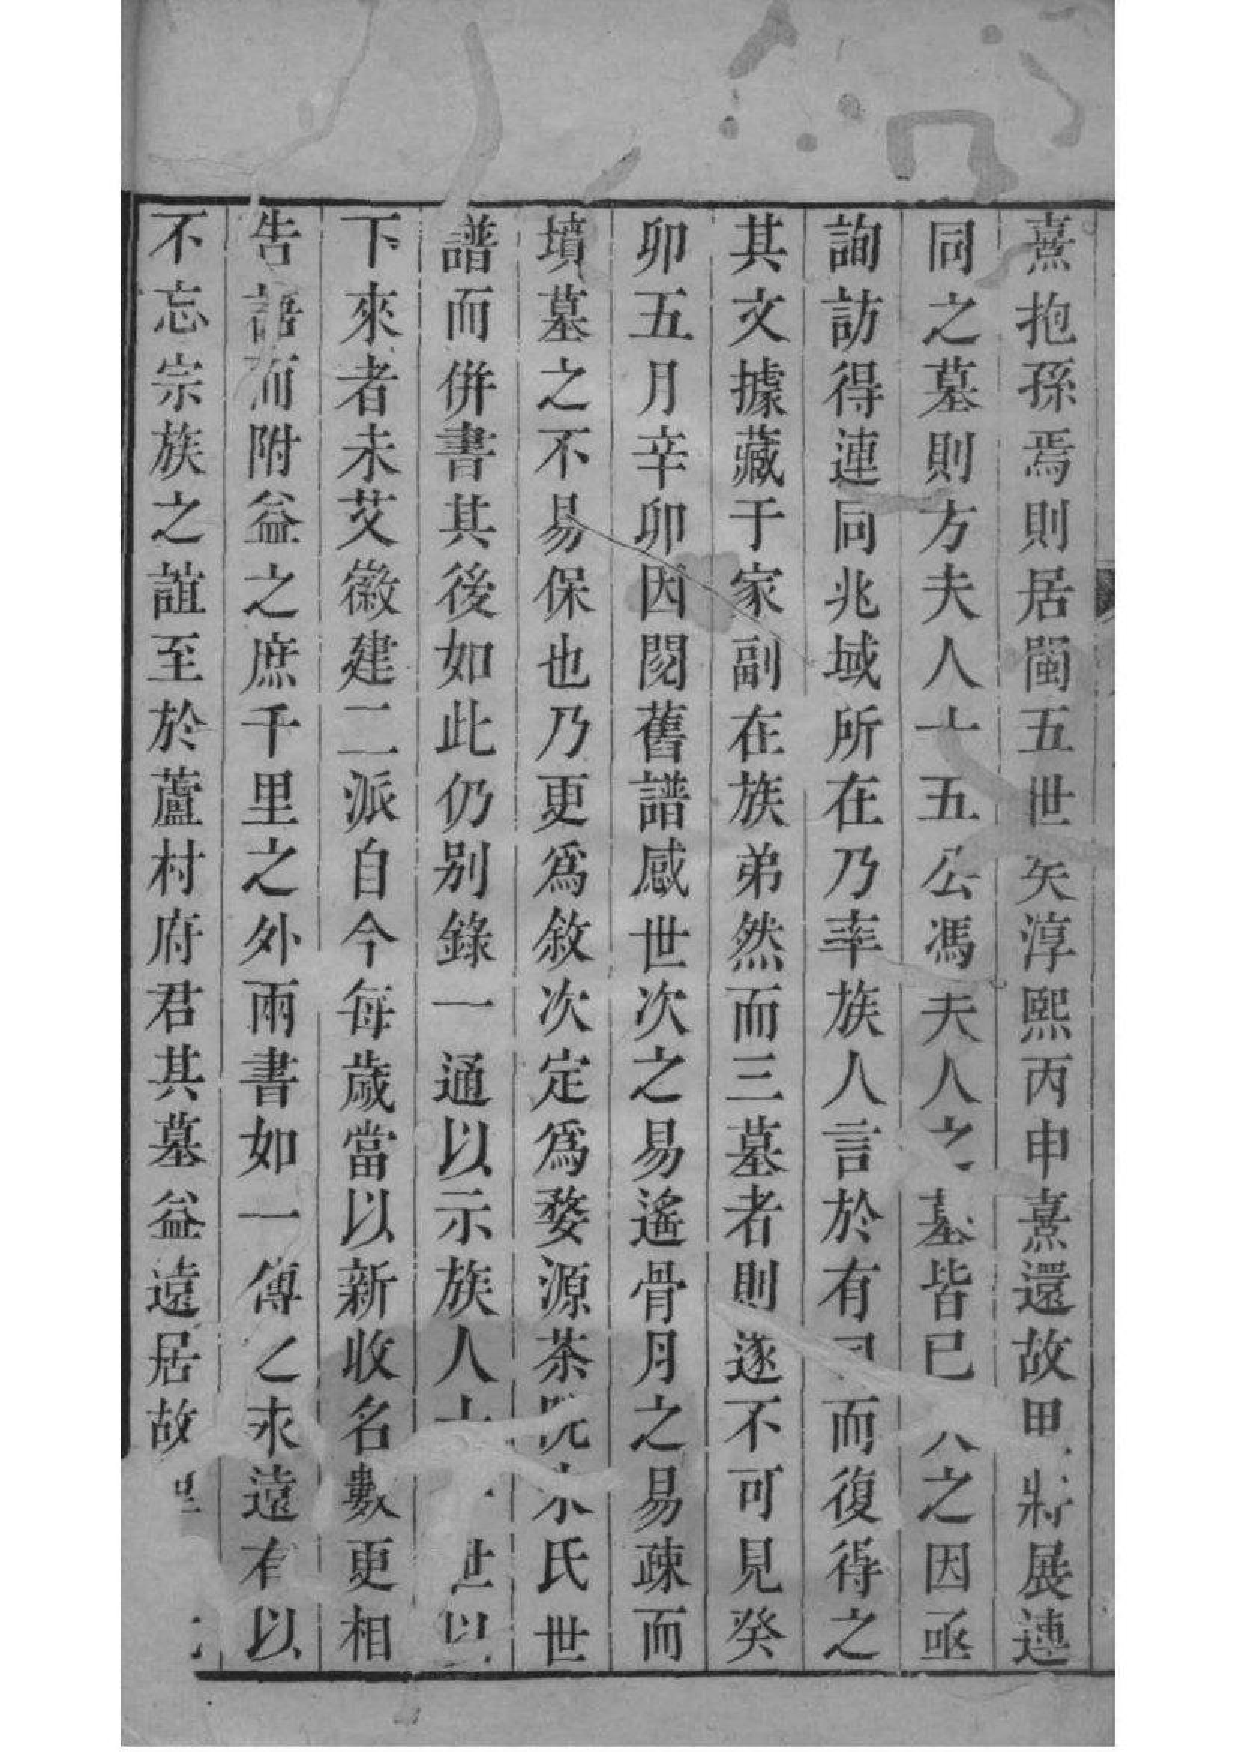 熹抱孫焉則居閩五世矣淳熙丙申熹還故里將展連
同之墓則方夫人十五公馮夫人之墓皆已之因亟
詢訪得連同兆域所在乃率族人言於有司而復得之
其文據藏于家副在族弟然而三墓者則遂不可見癸
卯五月辛卯因閱舊譜感世次之易遙骨月之易疎而
墳墓之不易保也乃更爲敘次定爲婺源茶院朱氏世
譜而併書其後如此仍别錄一通以示族人十一世以
下來者未艾徽建二派自今每歲當以新收名數更相
告語而附益之庶千里之外兩書如一傳之永遠有以
不忘宗族之誼至於蘆村府君其墓益遠居故里